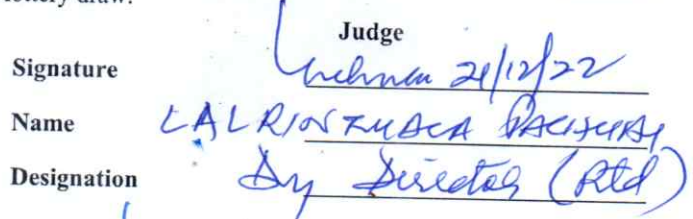 lottery draw.
Judge
Signature 21/12/22
Name LALRINZUALA PACHUAU
Designation Dy Director (Rtd)